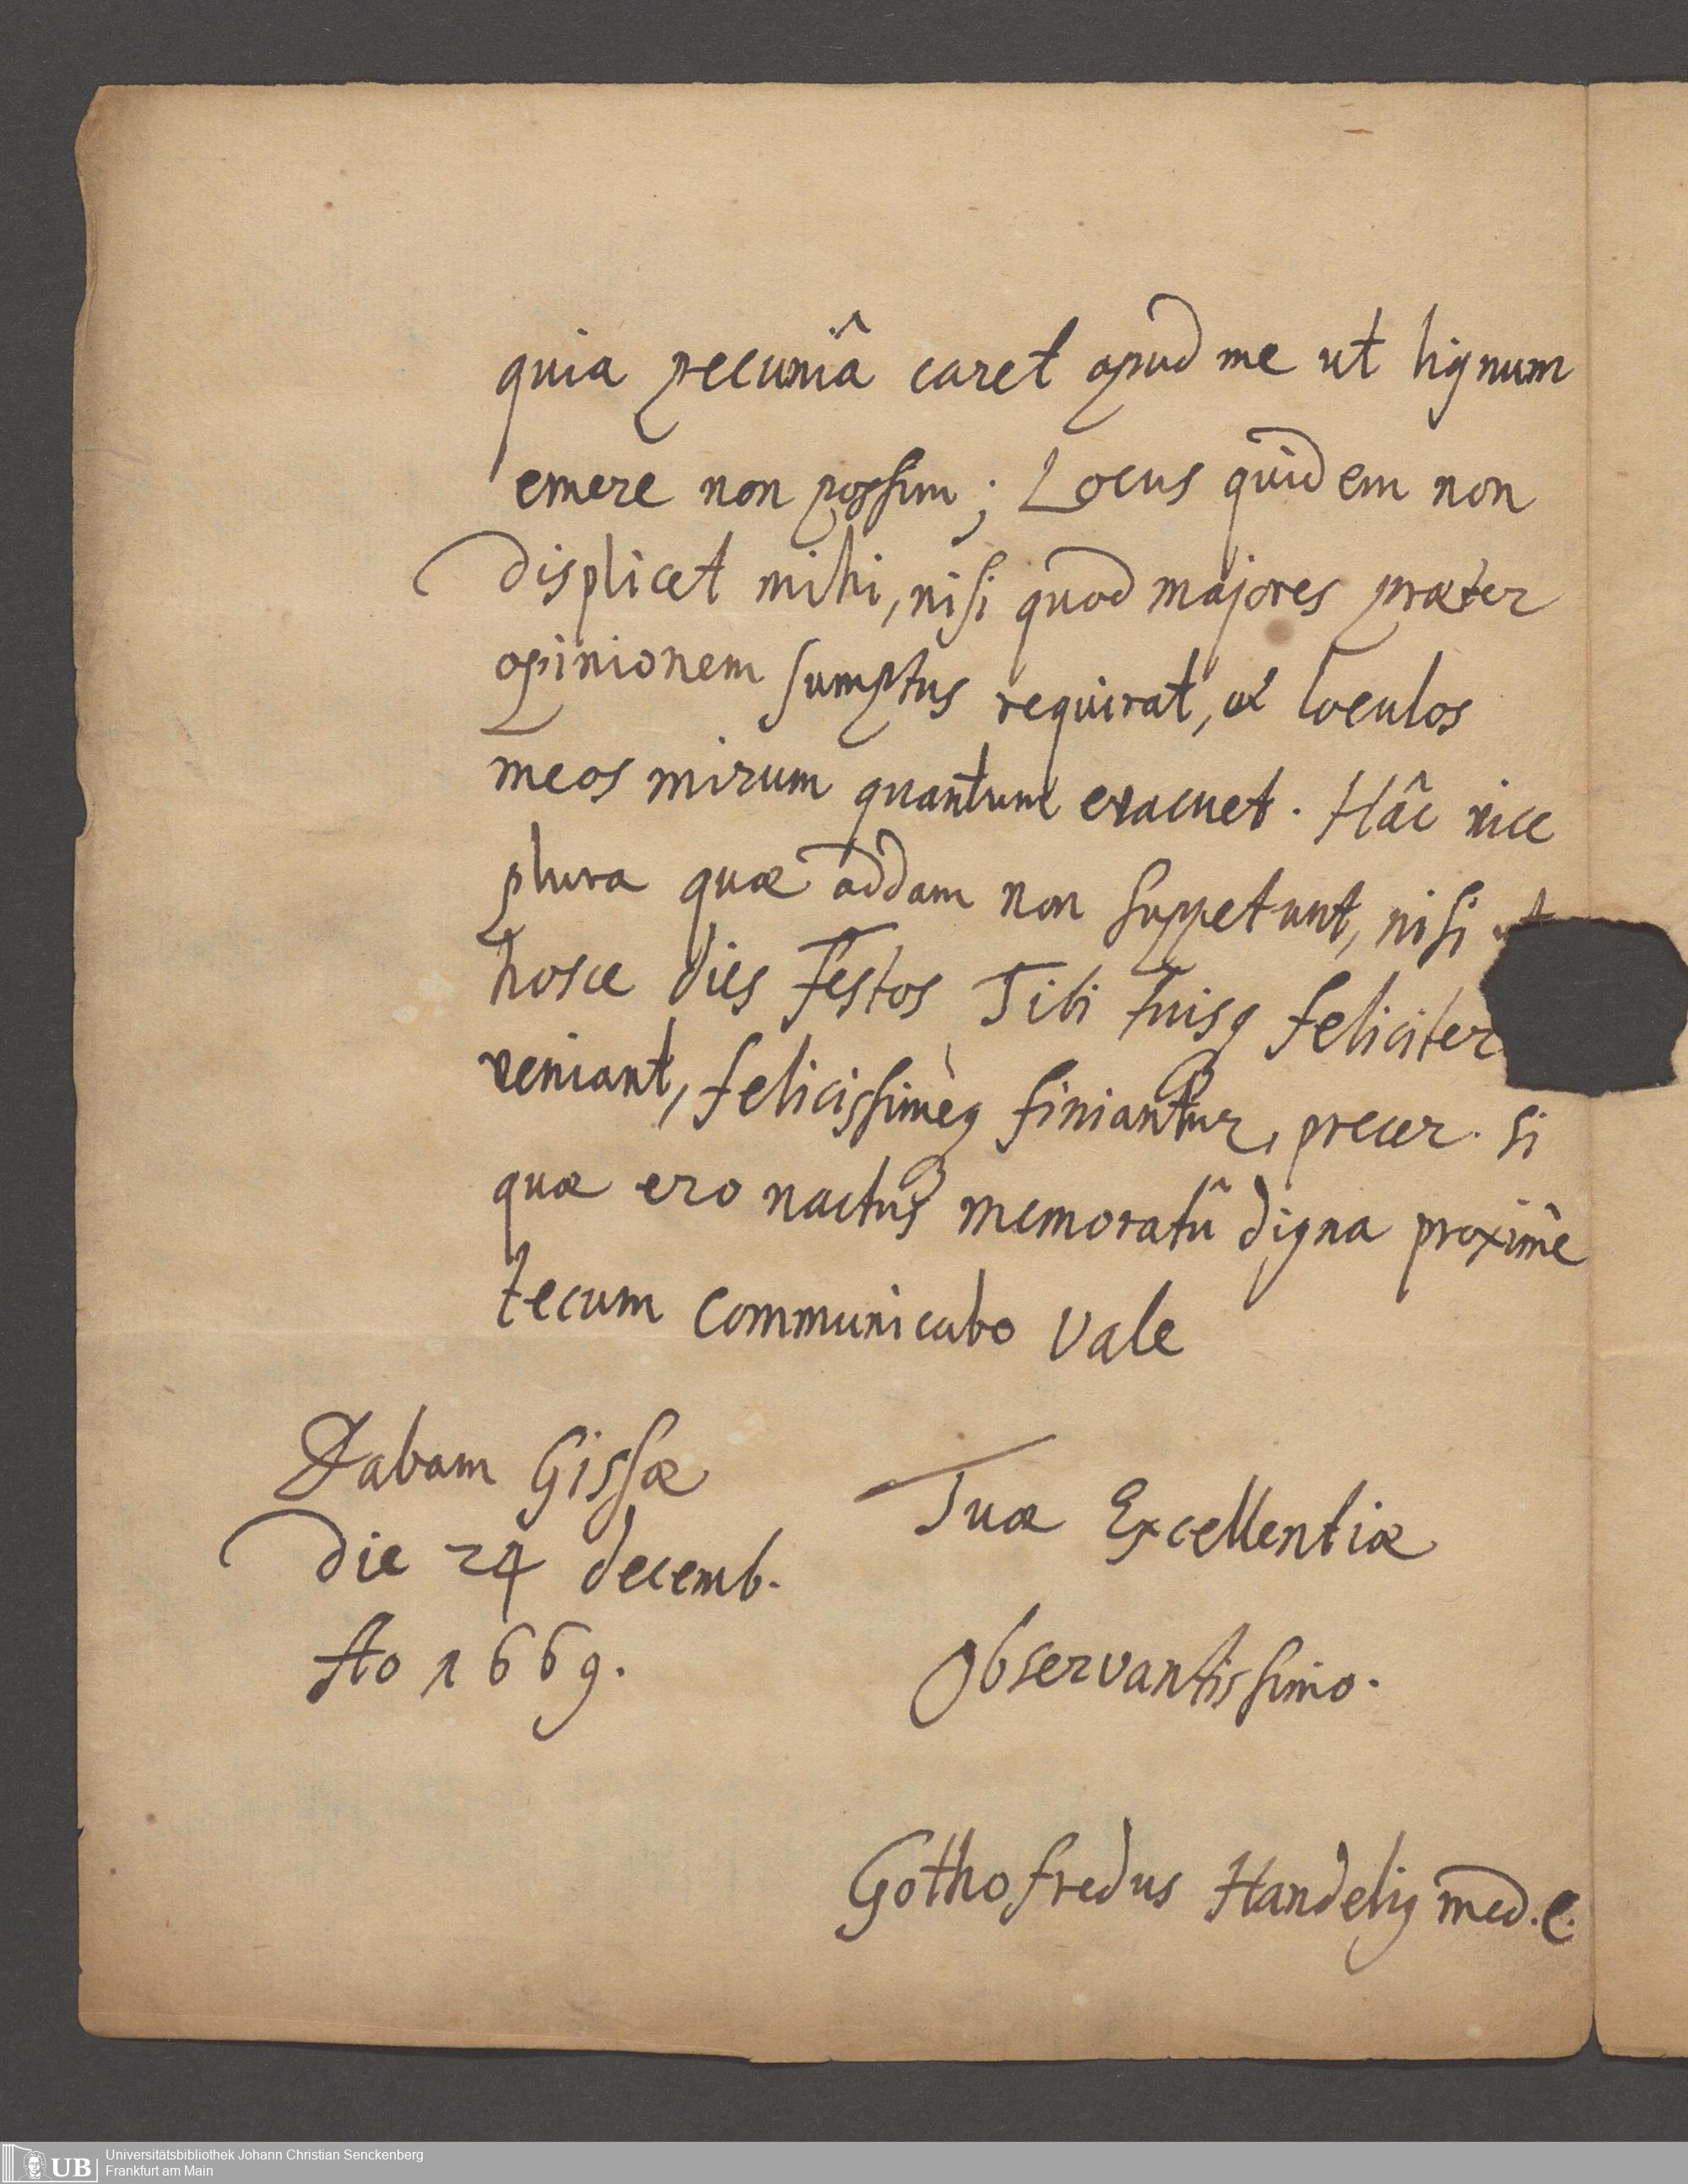 quia pecuniâ caret apud me ut lignum
emere non possim; Locus quidem non
displicet mihi, nisi quod majores præter
opinionem sumptus requirat, et loculos
meos mirum quantum evacuet. Hâc vice
plura quæ addam non suppetunt, nisi ut
hosce dies Festos Tibi tuisq feliciter
veniant, felicissimèq finiantur, precer. si
quæ ero nactus memoratû digna proximè
tecum communicabo Vale
Dabam Gissæ
Die 24 decemb.
Ao 1669.
Tuæ Excellentiæ
Observantissimo.
Gothofredus Handelig med. C.
UB Universitätsbibliothek Johann Christian Senckenberg
Frankfurt am Main